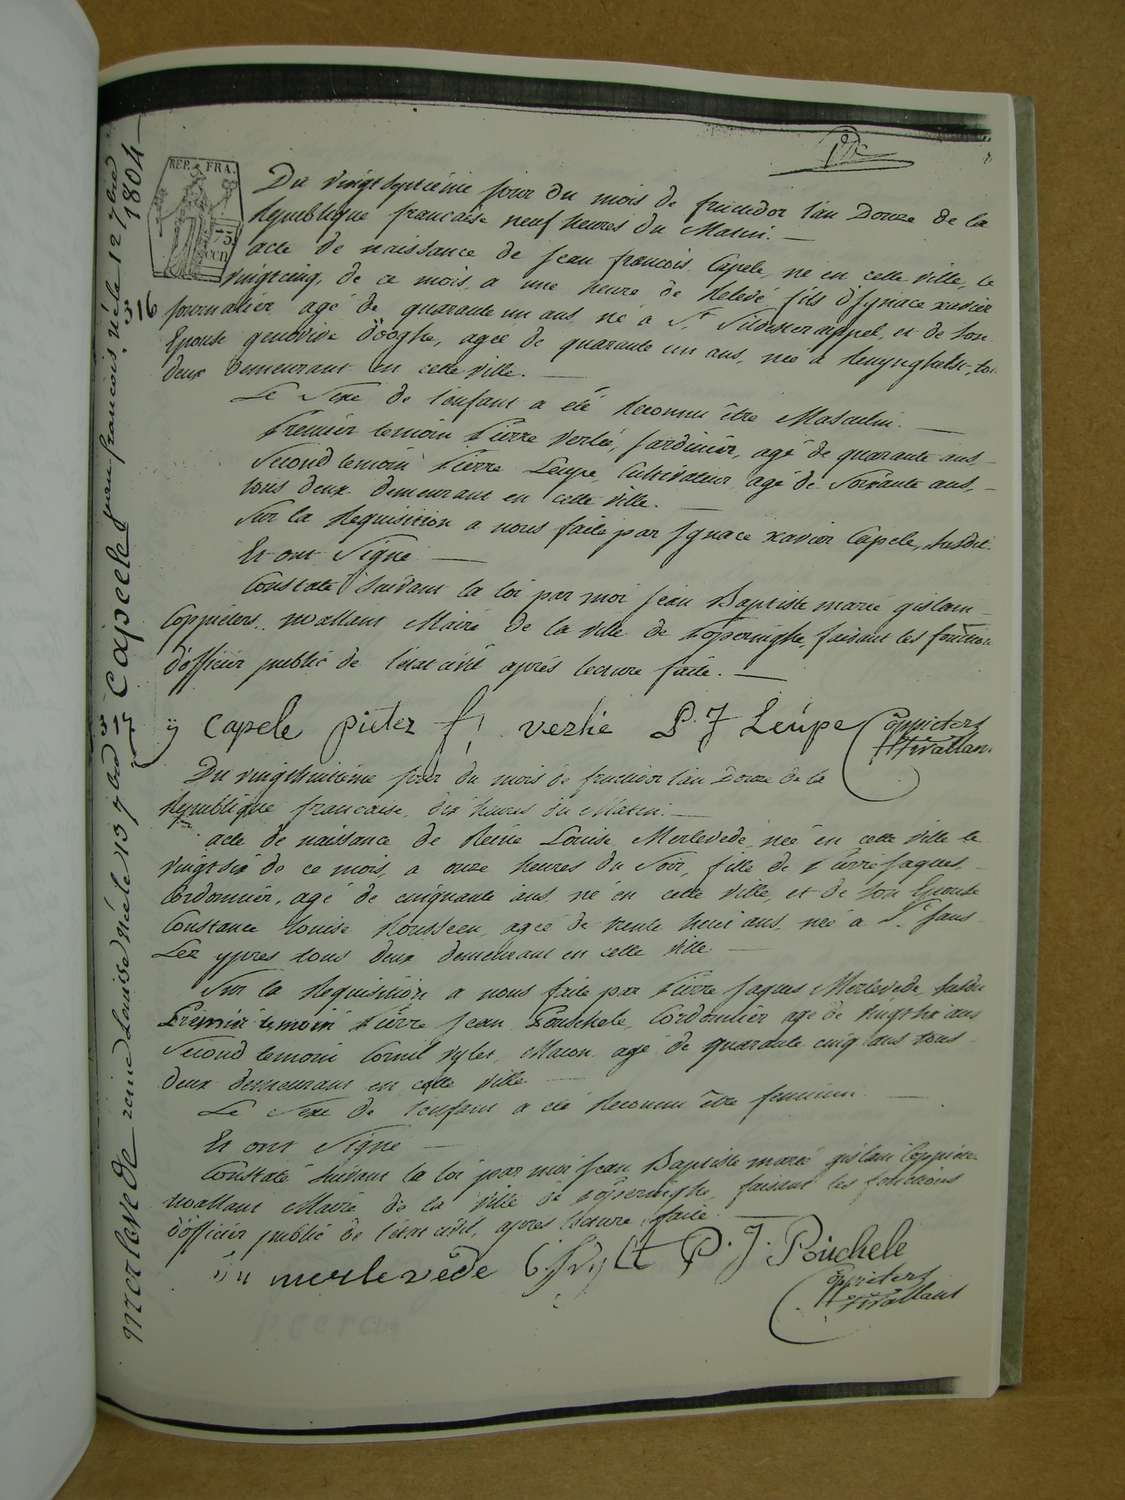 REP. FRA.
75
CEN
Du vingt septième jour du mois de fructidor l'an Douze de la
Republique française neuf heures du Matin. —
acte de naissance de jean francois Capele, né en cette ville, le
vingtcinq, de ce mois, a une heure de Relevé, fils d'jgnace xavier
journalier, agé de quarante un ans, né a St. Silvestercappel, et de Son
Epouse genovive D'ooghe, agée de quarante un ans, née a Renynghelst, tous
deux demeurant en cette ville. —
Le Sexe de l'enfant a été Reconnu être Masculin. —
Premier temoin Pierre Verlié, jardinier, agé de quarante ans, —
Second temoin Pierre Leupe, Cultivateur, agé de Soixante ans, —
tous deux demeurant en cette ville. —
Sur la Requisition a nous faite par jgnace xavier Capele, Susdit
Et ont Signé —
Constaté Suivant la loi par moi jean Baptiste marie gislain —
Coppieters, wallant Maire de la ville de Poperinghe, faisant les fonctions
d'officier public de l'état civil après lecture faite. —
ij capele pieter f. verlie P. J Leupe Coppieters
Hwallant
Du vingthuitième jour du mois de fructidor l'an Douze de la
Republique française, dix heures du Matin. —
acte de naissance de Reine Louise Merlevede, née en cette ville le
vingtsix de ce mois, a onze heures du Soir, fille de Pierre Jaques,
Cordonnier, agé de cinquante ans, né en cette ville, et de Son Epouse
Constance Louise Rousseeu, agée de trente ans, née a St. Jans
Lez ypres tous deux demeurant en cette ville —
Sur la Requisition a nous faite par Pierre Jaques Merlevede, Susdit
Premier temoin Pierre Jean Pouchele, Cordonnier agé de vingtsix ans
Second temoin Cornil Macon, agé de quarante cinq ans tous
deux demeurant en cette ville —
Le Sexe de l'enfant a été Reconnu être feminin —
Et ont Signé —
Constaté Suivant la loi par moi jean Baptiste marie gislain Coppieters
wallant Maire de la ville de Poperinghe, faisant les fonctions
d'officier public de l'état civil, après lecture faite.
merlevede P. J. Pouchele
Coppieters
Hwallant
316 Capeele jean francois, né le 12 7bre 1804 —
317 merlevede reine Louise née le 13 7bre